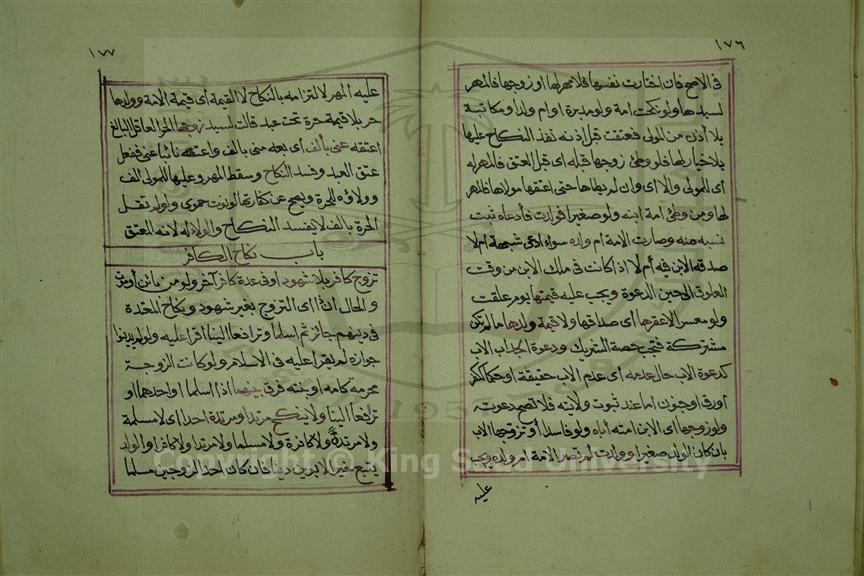 ١٧٦
في الاصح فان اختارت نفسها فلا مهر لها او زوجها فالمهر
لسيدها ولو نكحت امة ولو مدبرة او ام ولد او مكاتبة
بلا أذن من المولى فعتقت قبل اذنه نفذ النكاح عليها
بلا خيار لها فلو وطئ زوجها قبله أي قبل العتق فالمهر له
أي للمولى والا أي وان لم يطاها حتى اعتقها مولاها فالمهر
لها ومن وطئ امة ابنه ولو صغيرا فولدت فأدعاه ثبت
نسبه منه وصارت الامة ام ولده سواء ادعى شبهة ام لا
صدقه الابن فيه أم لا اذا كانت في ملك الابن من وقت
العلوق الى حين الدعوة ويجب عليه قيمتها يوم علقت
ولو معسرا لا عقرها أي صداقها ولا قيمة ولدها ما لم تكن
مشتركة فتجب حصة الشريك ودعوة الجد اب الاب
كدعوة الاب حال عدمه أي عدم الاب حقيقة او حكما ككفر
أو رق او جنون اما عند ثبوت ولايته فلا تصح دعوته
ولو زوجها أي الابن امته أباه ولو فاسدا أو تزوجها الاب
بان كان الولد صغيرا وولدت لم تصر الامة ام ولده ويجب
عليه
١٧٧
عليه المهر لالتزامه بالنكاح لا القيمة أي قيمة الامة وولدها
حر بلا قيمة حرة تحت عبد قالت لسيد زوجها الحر العاقل البالغ
اعتقه عني بألف أي بعه مني بالف واعتقه نائبا عني ففعل
عتق العبد وفسد النكاح وسقط المهر وعليها للمولى الف
وولاؤه للحرة ويصح عن كفارتها لو نوت حموي ولو لم تقل
الحرة بالف لا يفسد النكاح والولاء له لانه المعتق
باب نكاح الكافر
تزوج كافر بلا شهود او في عدة كافر آخر ولو من بائن أو موت
والحال ان ذا أي التزوج بغير شهود ونكاح المعتدة
في دينهم جائز ثم اسلما وترافعا الينا اقرا عليه ولو لم يدينوا
جوازه لم يقرا عليه في الاسلام ولو كانت الزوجة
محرمة كامه او بنته فرق بينهما اذا اسلما او احدهما او
ترافعا الينا ولا ينكح مرتد او مرتدة احدا أي لا مسلمة
ولا مرتدة ولا كافرة ولا مسلما ولا مرتدا ولا كافرا والولد
يتبع خير الابوين دينا فان كان احد الزوجين مسلما
Copyright © King Saud University
195